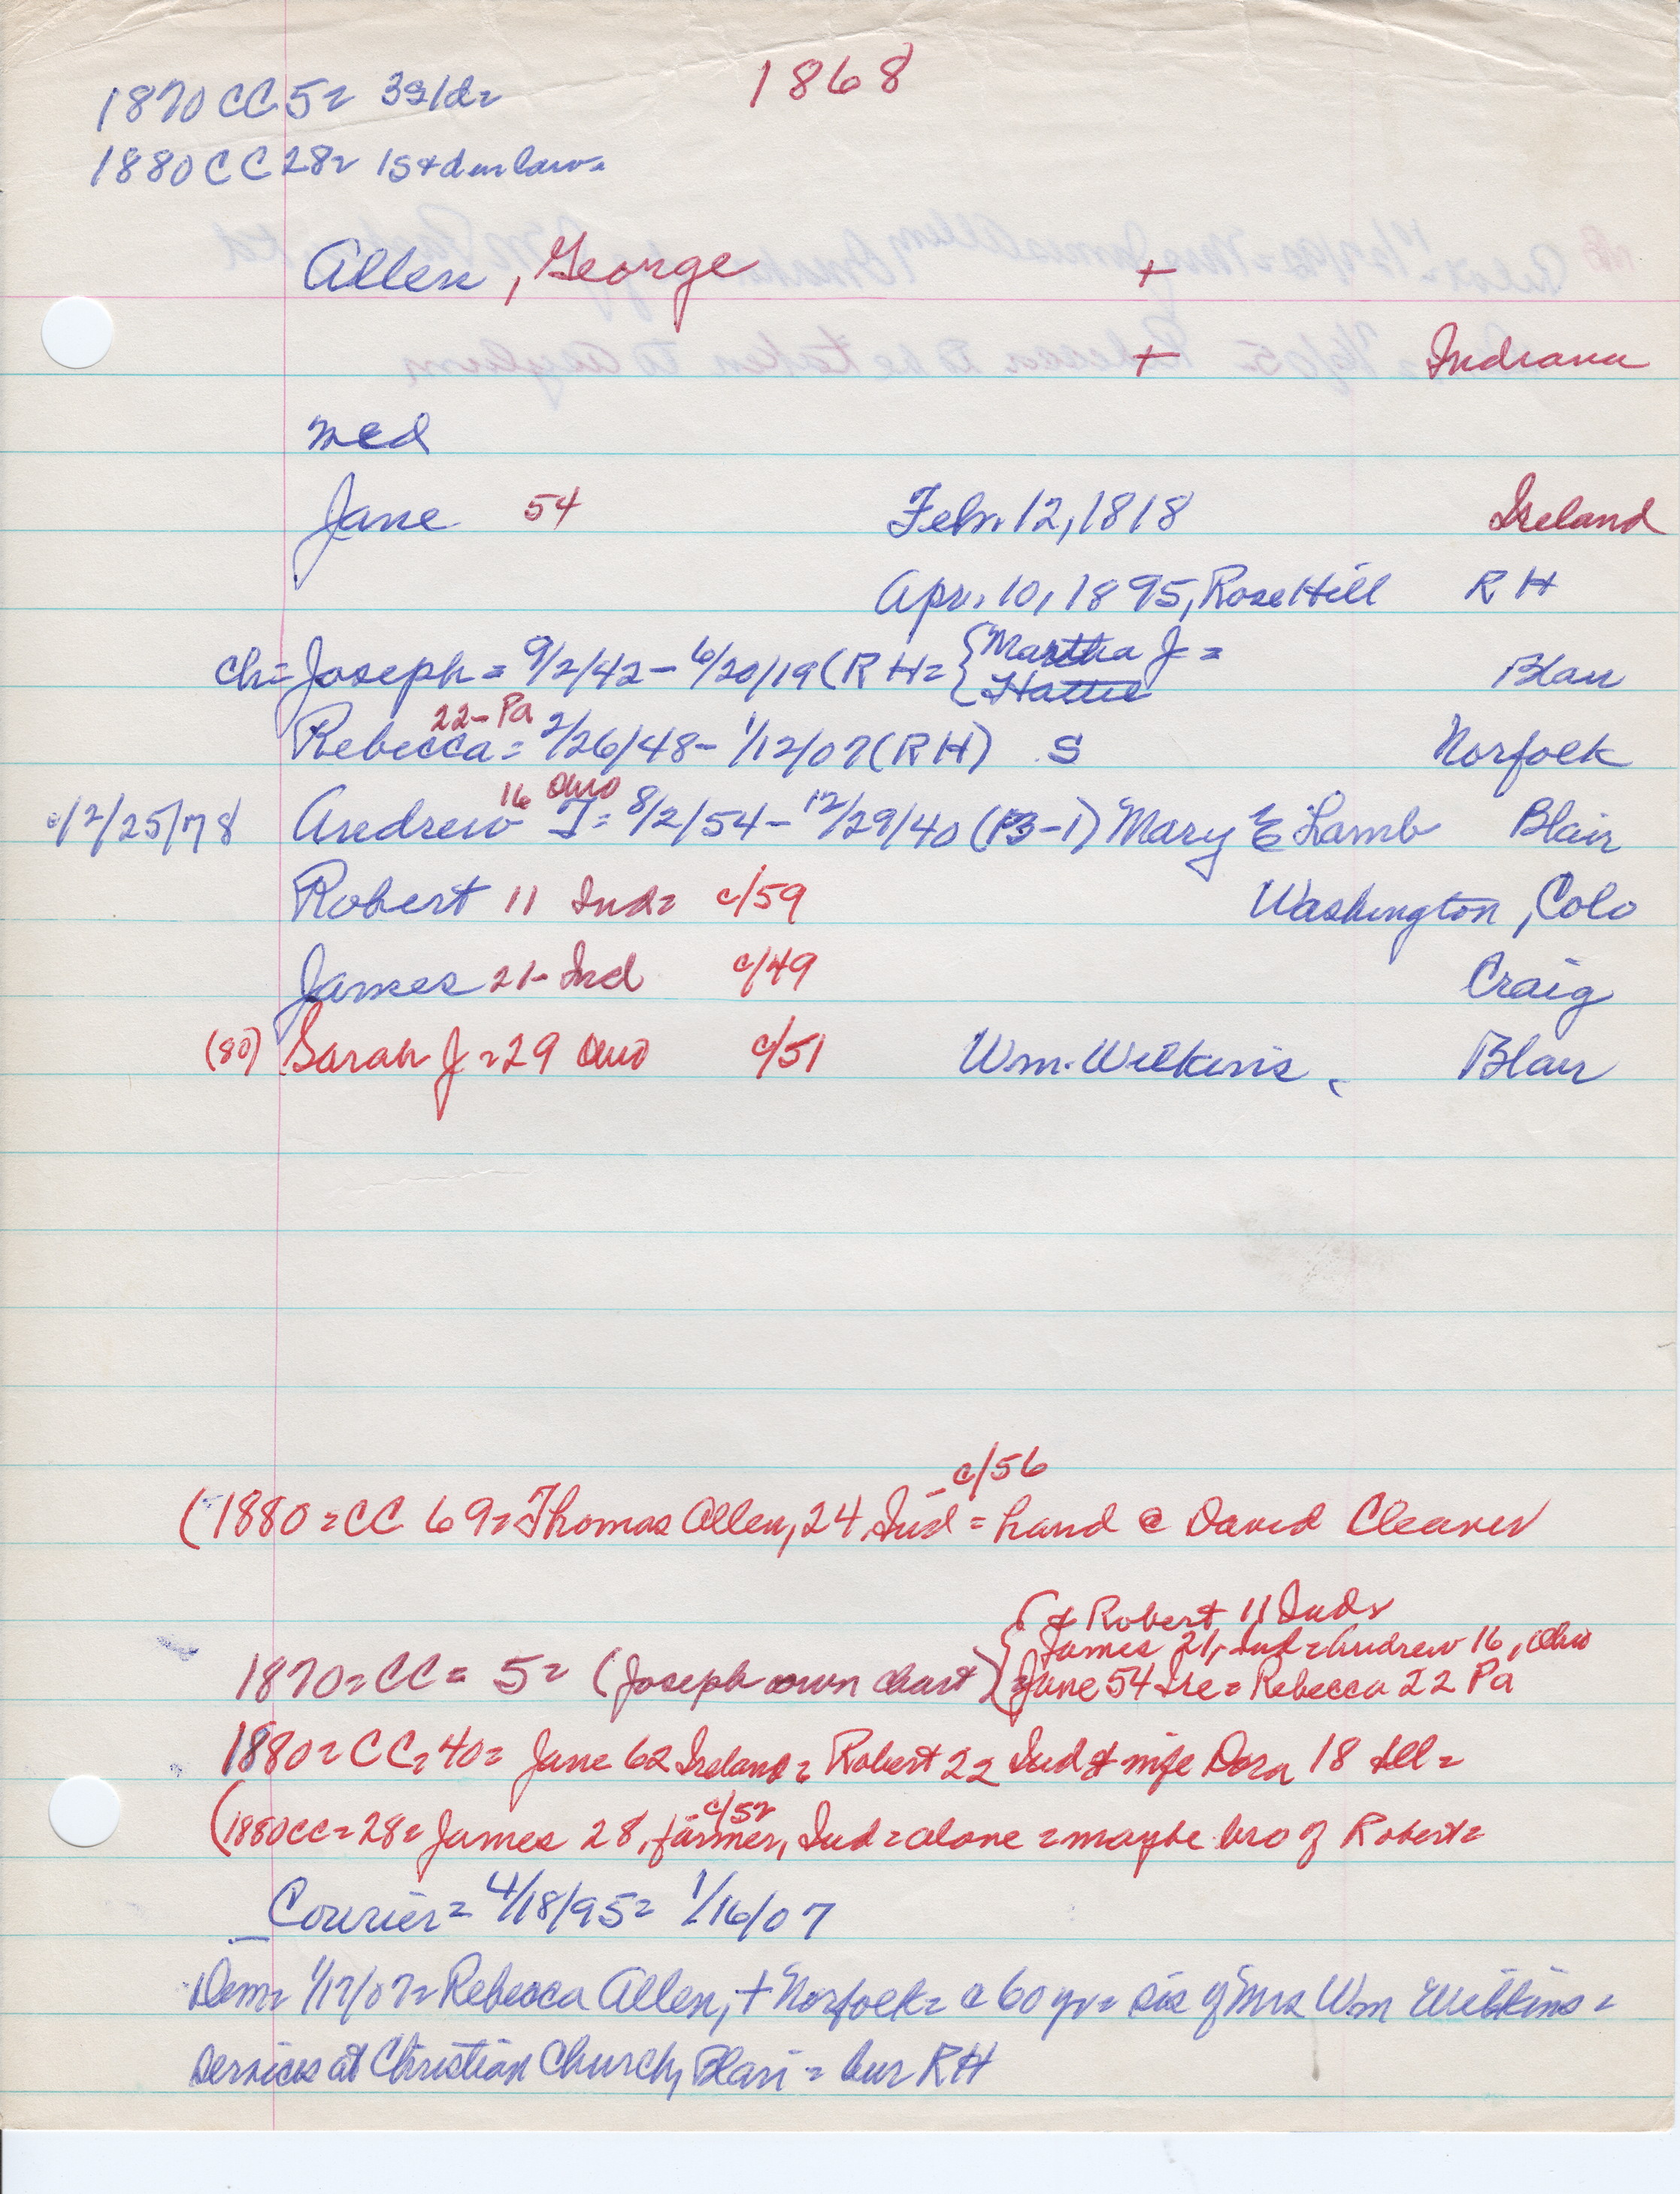 1868
1870 CC 5= 3s/d=
1880 CC 28= 1s + d in law=
Allen, George +
+ Indiana
med
Jane 54 Feb. 12, 1818 Ireland
Apr. 10, 1895, Rose Hill R H
ch= Joseph = 9/2/42 - 6/20/19 (R H= { Martha J =
Hattie Blair
22- Pa
Rebecca = 2/26/48 - 1/12/07 (R H) S Norfolk
16 Ohio
12/25/78 Andrew J= 8/2/54 - 12/29/40 (B-1) Mary E Lamb Blair
Robert 11 Ind= c/59 Washington, Colo
James 21- Ind c/49 Craig
(80) Sarah J = 29 Ohio c/51 Wm. Wilkins, Blair
c/56
(1880 = CC 69 = Thomas Allen, 24, Ind = hand @ David Cleaver
{ + Robert 11 Ind=
James 21, Ind = Andrew 16, Ohio
1870 = CC = 5 = (Joseph own chart) = Jane 54 Ire = Rebecca 22 Pa
1880 = CC = 40 = Jane 62 Ireland = Robert 22 Ind + wife Dora 18 Ill =
c/52
(1880 CC = 28 = James 28, farmer, Ind = alone = maybe bro of Robert =
Courier = 4/18/95 = 1/16/07
Dem= 1/17/07 = Rebecca Allen, + Norfolk = c 60 yr = sis of Mrs Wm Wilkins =
Services at Christian Church, Blair = bur RH